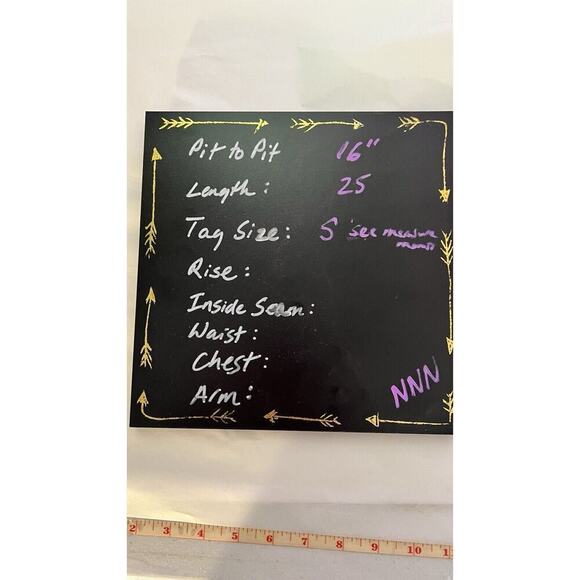 Pit to Pit 16"
Length: 25
Tag Size: S see measure
ments
Rise:
Inside Seam:
Waist:
Chest:
Arm:
NNN
2 3 4 5 6 7 8 9 10 11